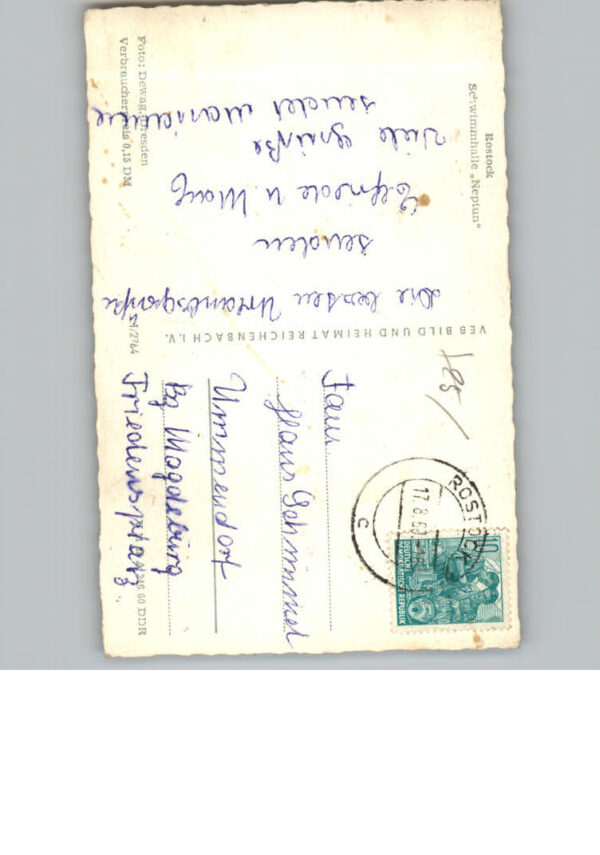 Rostock
Schwimmhalle „Neptun“
Die besten Urlaubsgrüße
senden
Elfriede u.
Viele Grüße
sendet Marianne
Foto: Dewag, Dresden
Verbraucherpreis 0,15 DM
VEB BILD UND HEIMAT REICHENBACH I.V.
ROSTOCK
17.8.6
c
10
DEUTSCHE
DEMOKRATISCHE REPUBLIK
Fam
Hans Schimmel
Ummendorf
Bz Magdeburg
Friedensplatz
246 60 DDR